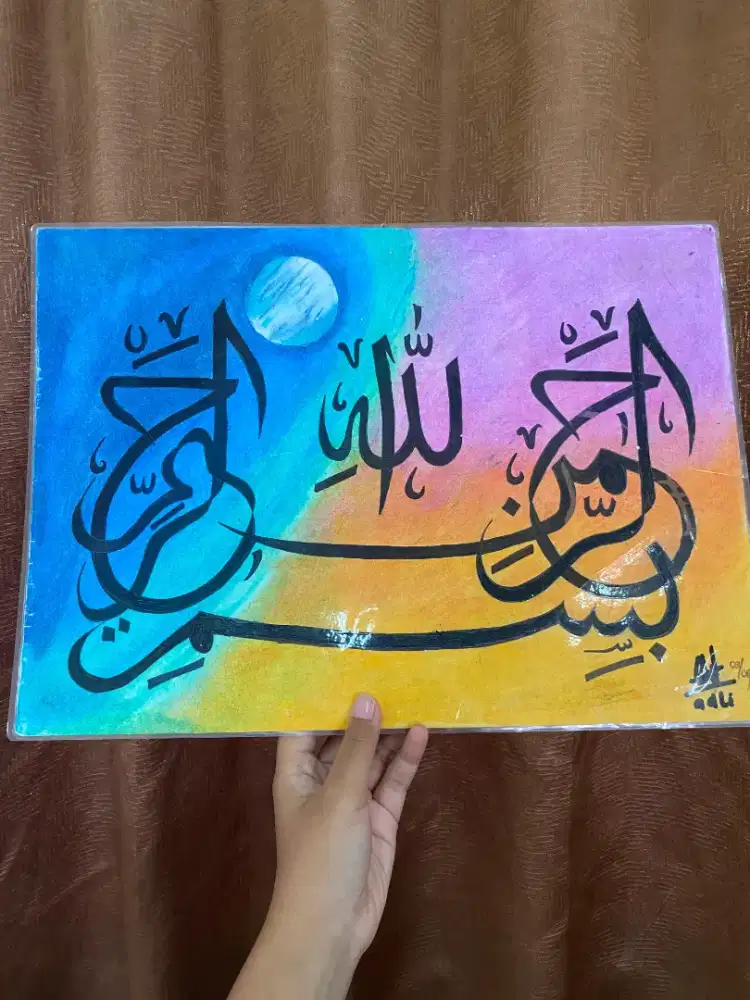 بِسْمِ اللهِ الرَّحْمٰنِ الرَّحِيْمِ
adli